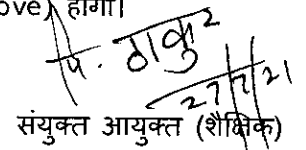 ove) होगा।
पि. ठाकुर
27/7/21
संयुक्त आयुक्त (शैक्षिक)